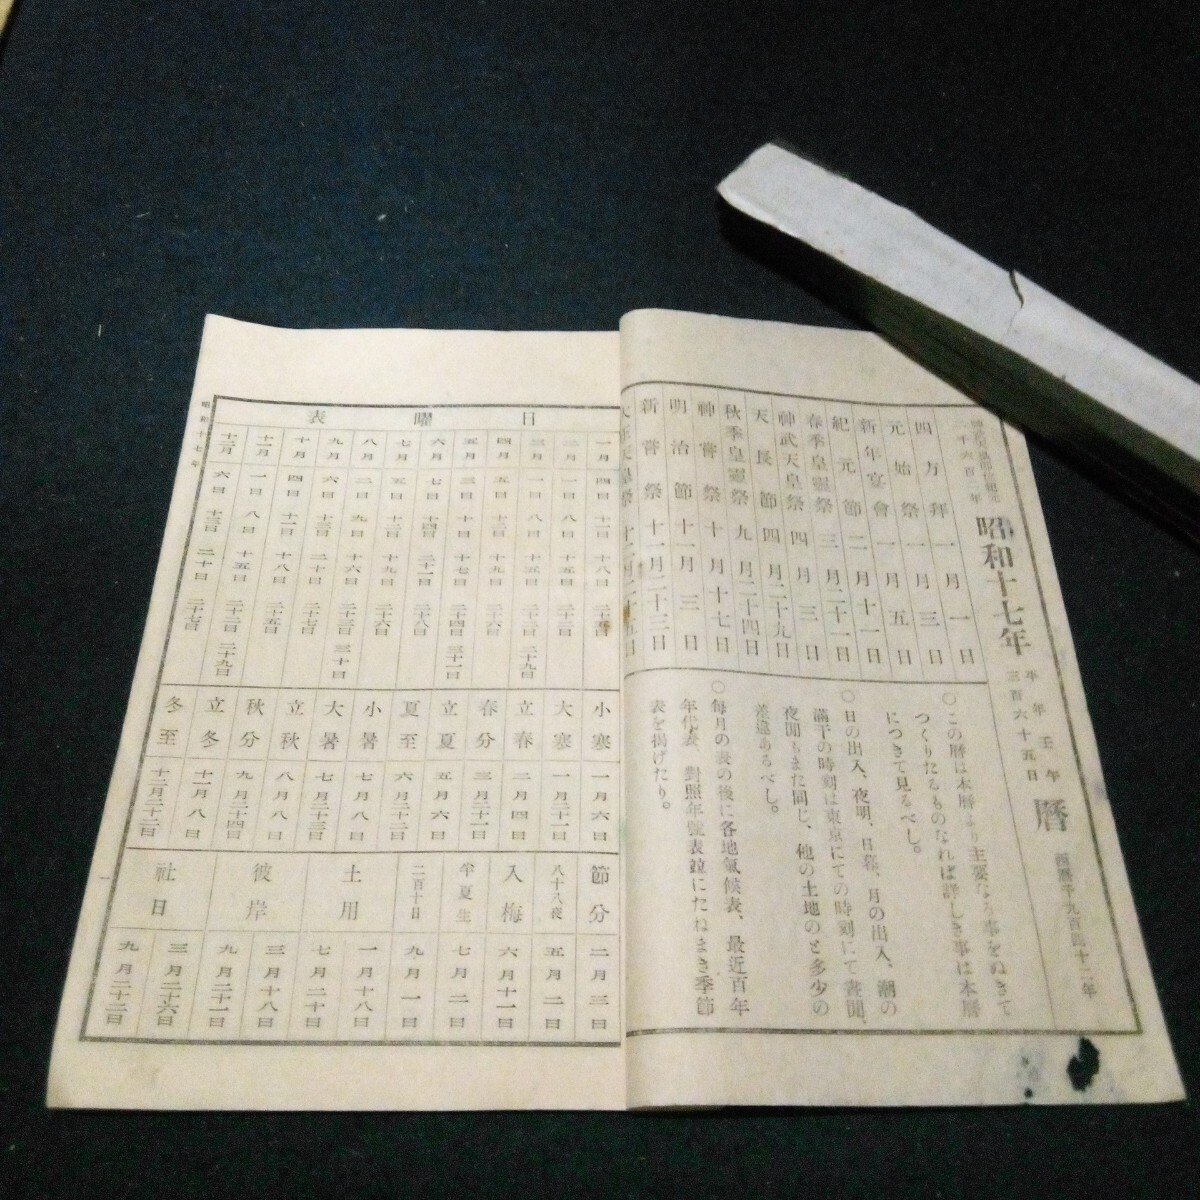 神武天皇即位紀元
二千六百二年
昭和十七年
平年
三百六十五日
壬午
暦
西暦千九百四十二年
四方拜 一月一日
元始祭 一月三日
新年宴會 一月五日
紀元節 二月十一日
春季皇靈祭 三月二十一日
神武天皇祭 四月三日
天長節 四月二十九日
秋季皇靈祭 九月二十四日
神嘗祭 十月十七日
明治節 十一月三日
新嘗祭 十一月二十三日
大正天皇祭 十二月二十五日
○この暦は本暦より主要なる事をぬきて
つくりたるものなれば詳しき事は本暦
につきて見るべし。
○日の出入、夜明、日暮、月の出入、潮の
滿干の時刻は東京にての時刻にて晝間、
夜間もまた同じ、他の土地のと多少の
差違あるべし。
○每月の表の後に各地氣候表、最近百年
年代表、對照年號表竝にたねまき季節
表を揭げたり。
日曜表
一月 四日 十一日 十八日 二十五日
二月 一日 八日 十五日 二十二日
三月 一日 八日 十五日 二十二日 二十九日
四月 五日 十二日 十九日 二十六日
五月 三日 十日 十七日 二十四日 三十一日
六月 七日 十四日 二十一日 二十八日
七月 五日 十二日 十九日 二十六日
八月 二日 九日 十六日 二十三日 三十日
九月 六日 十三日 二十日 二十七日
十月 四日 十一日 十八日 二十五日
十一月 一日 八日 十五日 二十二日 二十九日
十二月 六日 十三日 二十日 二十七日
小寒 一月六日
大寒 一月二十一日
立春 二月四日
春分 三月二十一日
立夏 五月六日
夏至 六月二十二日
小暑 七月八日
大暑 七月二十三日
立秋 八月八日
秋分 九月二十四日
立冬 十一月八日
冬至 十二月二十二日
節分 二月三日
八十八夜 五月二日
入梅 六月十一日
半夏生 七月二日
二百十日 九月一日
土用 一月十八日
七月二十日
彼岸 三月十八日
九月二十一日
社日 三月二十六日
九月二十二日
昭和十七年
一